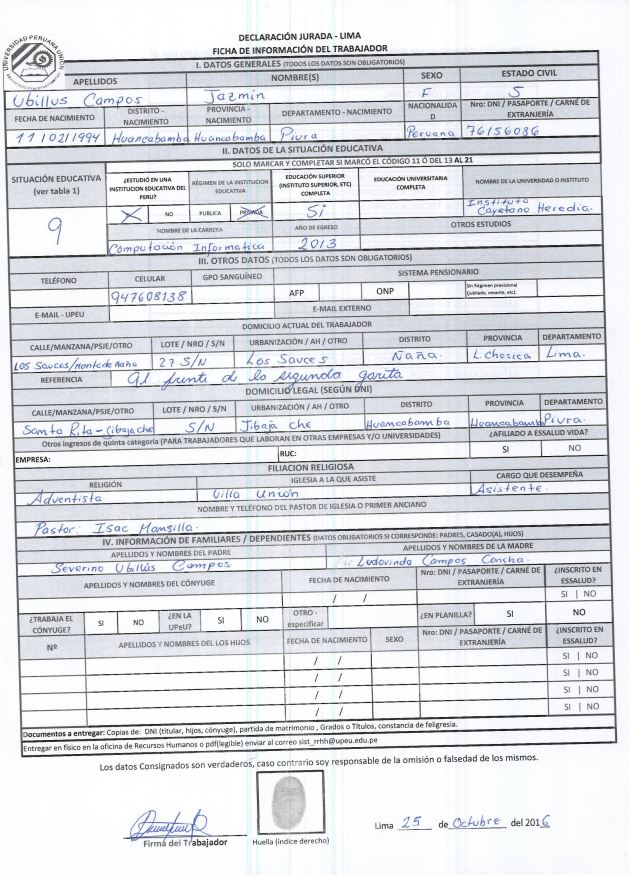 UNIVERSIDAD PERUANA UNION
DECLARACIÓN JURADA - LIMA
FICHA DE INFORMACIÓN DEL TRABAJADOR
I. DATOS GENERALES (TODOS LOS DATOS SON OBLIGATORIOS)
APELLIDOS NOMBRE(S) SEXO ESTADO CIVIL
Ubillus Campos Jazmín F S
FECHA DE NACIMIENTO DISTRITO - NACIMIENTO PROVINCIA - NACIMIENTO DEPARTAMENTO - NACIMIENTO NACIONALIDAD Nro: DNI / PASAPORTE / CARNÉ DE EXTRANJERÍA
11/02/1994 Huancabamba Huancabamba Piura Peruana 76156086
II. DATOS DE LA SITUACIÓN EDUCATIVA
SOLO MARCAR Y COMPLETAR SI MARCÓ EL CÓDIGO 11 Ó DEL 13 AL 21
SITUACIÓN EDUCATIVA (ver tabla 1) ¿ESTUDIÓ EN UNA INSTITUCION EDUCATIVA DEL PERU? RÉGIMEN DE LA INSTITUCION EDUCATIVA EDUCACIÓN SUPERIOR (INSTITUTO SUPERIOR, ETC) COMPLETA EDUCACIÓN UNIVERSITARIA COMPLETA NOMBRE DE LA UNIVERSIDAD O INSTITUTO
9 NO PUBLICA PRIVADA Si Instituto Cayetano Heredia.
NOMBRE DE LA CARRERA AÑO DE EGRESO OTROS ESTUDIOS
Computación Informatica 2013
III. OTROS DATOS (TODOS LOS DATOS SON OBLIGATORIOS)
TELÉFONO CELULAR GPO SANGUÍNEO SISTEMA PENSIONARIO
947608138 AFP ONP Sin Régimen previsional (Jubilado, cesante, etc).
E-MAIL - UPEU E-MAIL EXTERNO
DOMICILIO ACTUAL DEL TRABAJADOR
CALLE/MANZANA/PSJE/OTRO LOTE / NRO / S/N URBANIZACIÓN / AH / OTRO DISTRITO PROVINCIA DEPARTAMENTO
Los Sauces/Monte de Naña 27 S/N Los Sauces Ñaña. L. Chosica Lima.
REFERENCIA Al frente de la segunda garita
DOMICILIO LEGAL (SEGÚN DNI)
CALLE/MANZANA/PSJE/OTRO LOTE / NRO / S/N URBANIZACIÓN / AH / OTRO DISTRITO PROVINCIA DEPARTAMENTO
Santa Rita-Jibajache S/N Jibaja che Huancabamba Huancabamba Piura.
Otros ingresos de quinta categoría (PARA TRABAJADORES QUE LABORAN EN OTRAS EMPRESAS Y/O UNIVERSIDADES) ¿AFILIADO A ESSALUD VIDA?
EMPRESA: RUC: SI NO
FILIACION RELIGIOSA
RELIGIÓN IGLESIA A LA QUE ASISTE CARGO QUE DESEMPEÑA
Adventista Villa Unión Asistente.
NOMBRE Y TELÉFONO DEL PASTOR DE IGLESIA O PRIMER ANCIANO
Pastor: Isac Mansilla.
IV. INFORMACIÓN DE FAMILIARES / DEPENDIENTES (DATOS OBLIGATORIOS SI CORRESPONDE: PADRES, CASADO(A), HIJOS)
APELLIDOS Y NOMBRES DEL PADRE APELLIDOS Y NOMBRES DE LA MADRE
Severino Ubillús Campos Ludovinda Campos Concha
APELLIDOS Y NOMBRES DEL CÓNYUGE FECHA DE NACIMIENTO Nro: DNI / PASAPORTE / CARNÉ DE EXTRANJERÍA ¿INSCRITO EN ESSALUD?
/ / SI | NO
¿TRABAJA EL CÓNYUGE? SI NO ¿EN LA UPeU? SI NO OTRO - especificar ¿EN PLANILLA? SI NO
Nº APELLIDOS Y NOMBRES DEL LOS HIJOS FECHA DE NACIMIENTO SEXO Nro: DNI / PASAPORTE / CARNÉ DE EXTRANJERÍA ¿INSCRITO EN ESSALUD?
/ / SI | NO
/ / SI | NO
/ / SI | NO
/ / SI | NO
Documentos a entregar: Copias de: DNI (titular, hijos, cónyuge), partida de matrimonio , Grados o Títulos, constancia de feligresia.
Entregar en físico en la oficina de Recursos Humanos o pdf(legible) enviar al correo sist_rrhh@upeu.edu.pe
Los datos Consignados son verdaderos, caso contrario soy responsable de la omisión o falsedad de los mismos.
Lima 25 de Octubre del 2016
Firma del Trabajador Huella (índice derecho)